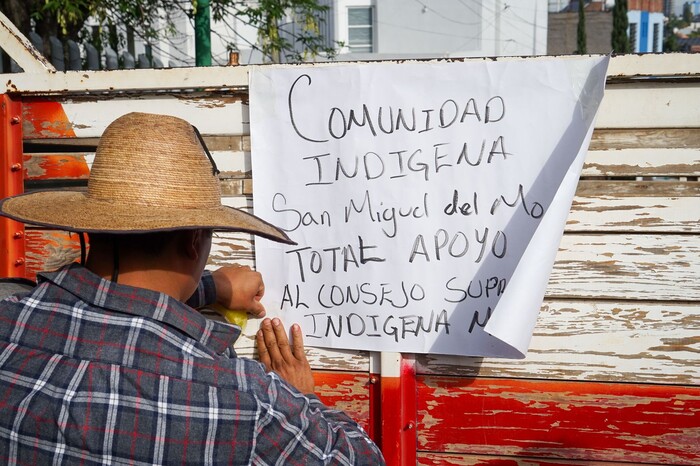 COMUNIDAD
INDIGENA
San Miguel del
TOTAL APOYO
AL CONSEJO
INDIGENA